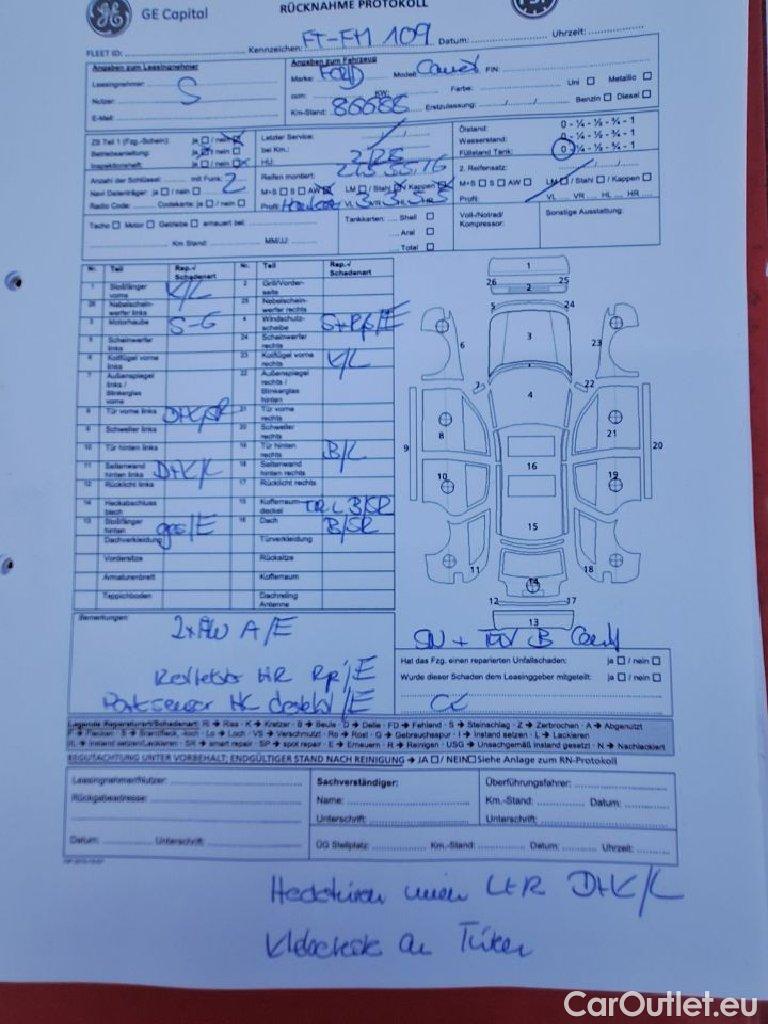 GE Capital
RÜCKNAHME PROTOKOLL
FLEET ID: Kennzeichen: FT-FM 109 Datum: Uhrzeit:
Angaben zum Leasingnehmer
Leasingnehmer:
Nutzer: S
E-Mail:
Angaben zum Fahrzeug
Marke: FORD Modell: FIN:
ccm: KW: Farbe: Uni Metallic
Km-Stand: 86686 Erstzulassung: Benzin Diesel
ZB Teil 1 (Fzg.-Schein): ja / nein
Betriebsanleitung: ja / nein
Inspektionsheft: ja / nein
Anzahl der Schlüssel: mit Funk: 2
Navi Datenträger: ja / nein
Radio Code: Codekarte: ja / nein
Letzter Service:
bei Km.:
HU:
Reifen montiert:
M+S S AW LM / Stahl / Kappen
Profil:
Ölstand: 0 - ¼ - ½ - ¾ - 1
Wasserstand: 0 - ¼ - ½ - ¾ - 1
Füllstand Tank: 0 - ¼ - ½ - ¾ - 1
2. Reifensatz:
M+S S AW LM / Stahl / Kappen
Profil: VL VR HL HR
Tacho Motor Getriebe erneuert bei:
Km. Stand: MM/JJ:
Tankkarten: Shell
Aral
Total
Voll-/Notrad/
Kompressor:
Sonstige Ausstattung:
Nr. Teil Rep.-/Schadenart Nr. Teil Rep.-/Schadenart
1 Stoßfänger vorne K/L 2 Grill/Vorderseite
26 Nebelscheinwerfer links 25 Nebelscheinwerfer rechts
3 Motorhaube S-G 4 Windschutzscheibe
5 Scheinwerfer links 24 Scheinwerfer rechts
6 Kotflügel vorne links 23 Kotflügel vorne rechts K/L
7 Außenspiegel links / Blinkerglas vorne 22 Außenspiegel rechts / Blinkerglas hinten
8 Tür vorne links D+K/SR 21 Tür vorne rechts
9 Schweller links 20 Schweller rechts
10 Tür hinten links 19 Tür hinten rechts B/L
11 Seitenwand hinten links D+K/L 18 Seitenwand hinten rechts
12 Rücklicht links 17 Rücklicht rechts
14 Heckabschlussblech 15 Kofferraumdeckel B/SR
13 Stoßfänger hinten 16 Dach B/SR
Dachverkleidung Türverkleidung
Vordersitze Rücksitze
Armaturenbrett Kofferraum
Teppichboden Dachreling Antenne
1
26 25
2
5 24
3
6 23
7 22
4
8 21
9 20
16
10 19
15
11 18
14
12 17
13
Bemerkungen:
2xAW A/E
HR
Parksensor
Hat das Fzg. einen reparierten Unfallschaden: ja / nein
Wurde dieser Schaden dem Leasinggeber mitgeteilt: ja / nein
Legende (Reparaturart/Schadenart): R → Riss - K → Kratzer - B → Beule - D → Delle - FD → Fehlend - S → Steinschlag - Z → Zerbrochen - A → Abgenutzt
F → Flecken - B → Brandfleck, -loch - Lo → Loch - VS → Verschmutzt - Ro → Rost - G → Gebrauchsspur - I → Instand setzen - L → Lackieren
IL → Instand setzen/Lackieren - SR → smart repair - SP → spot repair - E → Erneuern - R → Reinigen - USG → Unsachgemäß instand gesetzt - N → Nachlackiert
BEGUTACHTUNG UNTER VORBEHALT, ENDGÜLTIGER STAND NACH REINIGUNG → JA / NEIN Siehe Anlage zum RN-Protokoll
Leasingnehmer/Nutzer:
Rückgabeadresse:
Datum: Unterschrift:
Sachverständiger:
Name:
Unterschrift:
Überführungsfahrer:
Km.-Stand: Datum:
Unterschrift:
ÜG Stellplatz: Km.-Stand: Datum: Uhrzeit:
Hecktüren L+R D+K/L
CarOutlet.eu